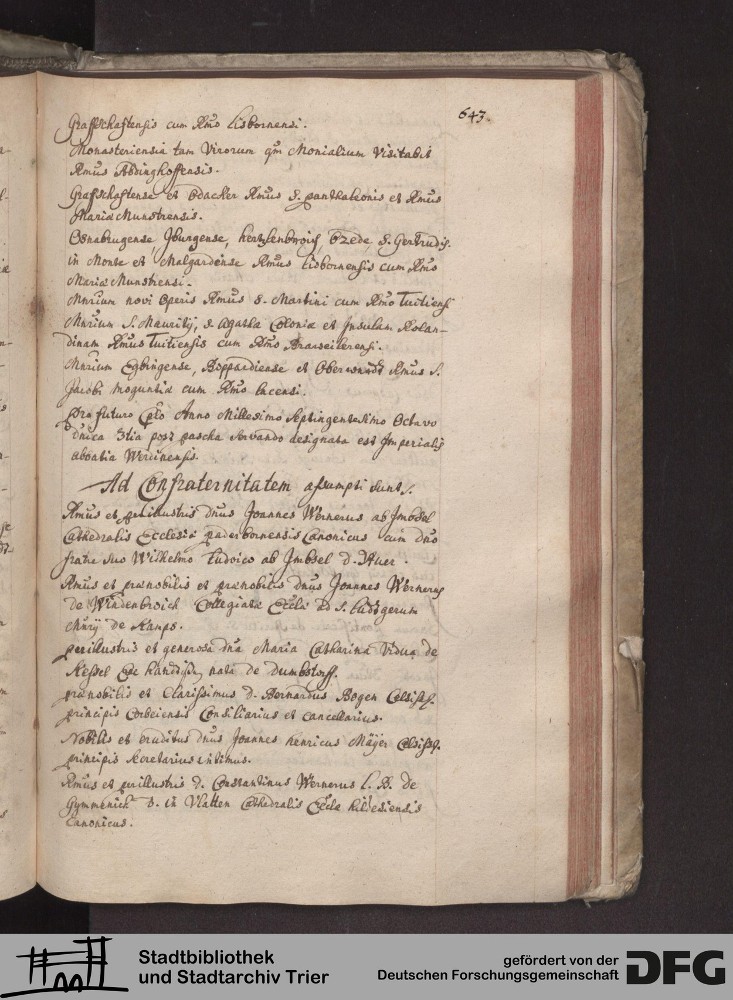 643.
Graffschaftensis cum Rmo Lisbornensi.
Monasteriensia tam Virorum qm Monialium Visitabit
Rmus Abdinghoffensis.
Graffschaftense et Odacker Rmus S. pantaleonis et Rmus
Mariae Munstrensis.
Osnabrugense, Iburgense, Hertzenbroich, Ozede, S. Gertrudis
in Monte et Malgardense Rmus Lisbornensis cum Rmo
Mariae Munstrensi.
Mnrium novi Operis Rmus S. Martini cum Rmo Tuitiensi
Mnrium S. Mauritij, S. Agatha Coloniae et Insulam Rolan-
dinam Rmus Tuitiensis cum Rmo Braweilerensi.
Mnrium Egbingense, Boppardiense et Rmus S.
Jacobi Moguntiae cum Rmo Lacensi.
futuro Cplo Anno Millesimo Septingentesimo Octavo
dnica 3tia post pascha servando designata est Imperialis
abbatia Werdinensis.
Ad Confraternitatem assumpti sunt.
Rmus et perillustris dnus Joannes Wernerus ab Imbsel
Cathedralis Ecclesiae paderbornensis Canonicus cum dno
fratre suo Wilhelmo Ludovico ab Imbsel d.
Rmus et praenobilis et praenobilis dnus Joannes Wernerus
de Windenbroich Collegiatae Eccliae ad S. Ludgerum
Mnrij de Kamps.
perillustris et generosa dna Maria Catharina Vidua de
Kessel nata de Dumbstorff.
praenobilis et Clarissimus d. Bernardus Bogen Celsiss.
principis Corbeiensis Consiliarius et cancellarius.
Nobilis et eruditus dnus Joannes Henricus Mäyer Celsiss.
principis secretarius intimus.
Rmus et perillustris d. Constantinus Wernerus L. B. de
Gymmenich D. in Vlatten Cathedralis Eccle hildesiensis
Canonicus.
Stadtbibliothek
und Stadtarchiv Trier
gefördert von der
Deutschen Forschungsgemeinschaft
DFG